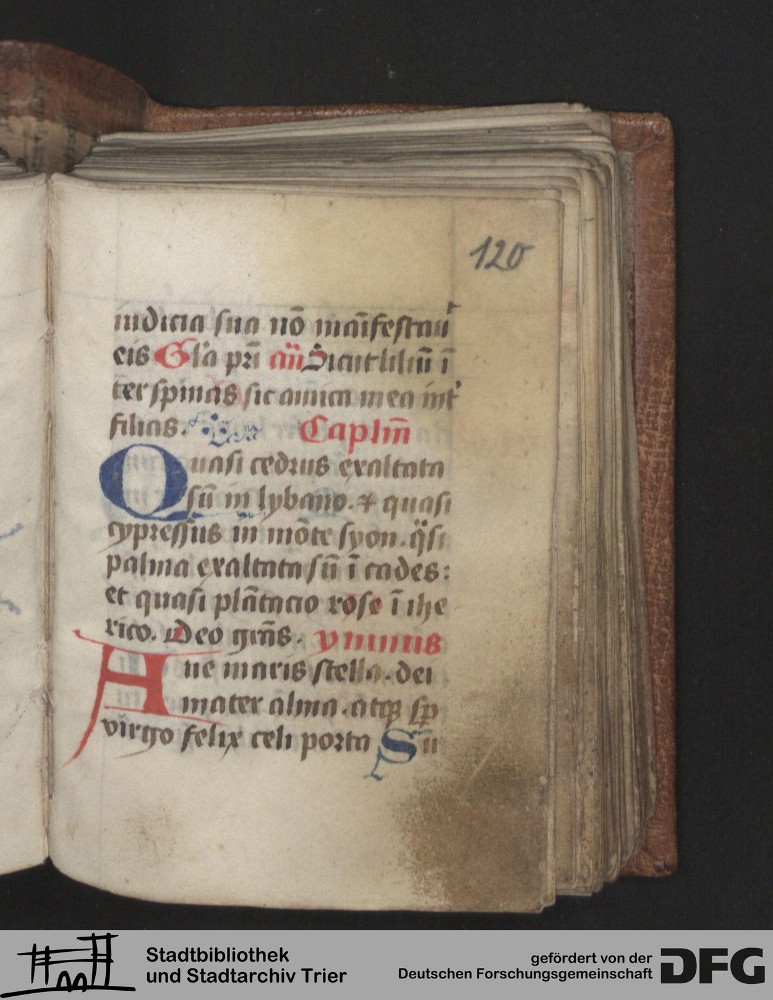 120
iudicia sua nō māifestauͥ
eis Gl'a pr̄i an̄ Sicut liliū ī
ter spinas sic amica mea int'
filias. Caplm̄
Quasi cedrus exaltata
sū in lybano. ⁊ quasi
cypressus in mōte syon. q̈si
palma exaltata sū ī cades:
et quasi plātacio rose ī ihe
rico. Deo gr̄as. ymnus
Aue maris stella. dei
mater alma. atqꝫ sꝑ
virgo felix celi porta Su
Stadtbibliothek
und Stadtarchiv Trier
gefördert von der
Deutschen Forschungsgemeinschaft
DFG